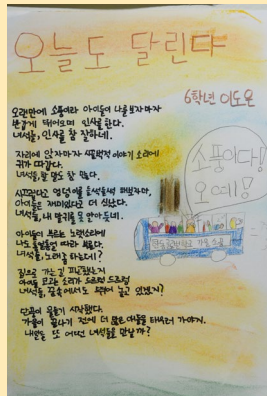 오늘도 달린다
6학년 이도온
오랜만에 소풍이라 아이들이 나를 보자마자
반갑게 뛰어오며 인사를 한다.
녀석들, 인사를 참 잘하네.
자리에 앉자마자 시끌벅적 이야기 소리에
귀가 따갑다.
녀석들, 말 많도 참 많다.
엉덩이를 들썩들썩
아이들은 재미있다고 더 신났다.
녀석들, 내 맘을 못 알아듣네.
아이들이 부르는 노랫소리에
나도 흥얼흥얼 따라 부른다.
녀석들, 노래 잘 하는데!?
집으로 가는 길 피곤했는지
아이들 코고는 소리가 드르렁 드르렁
녀석들, 꿈속에서도 뛰어 놀고 있겠지?
단풍이 물들기 시작했다.
가을이 끝나기 전에 더 많은 아이들을 태우러 가야지.
내일은 또 어떤 녀석들을 만날까?
소풍이다!
오예!
가을 소풍